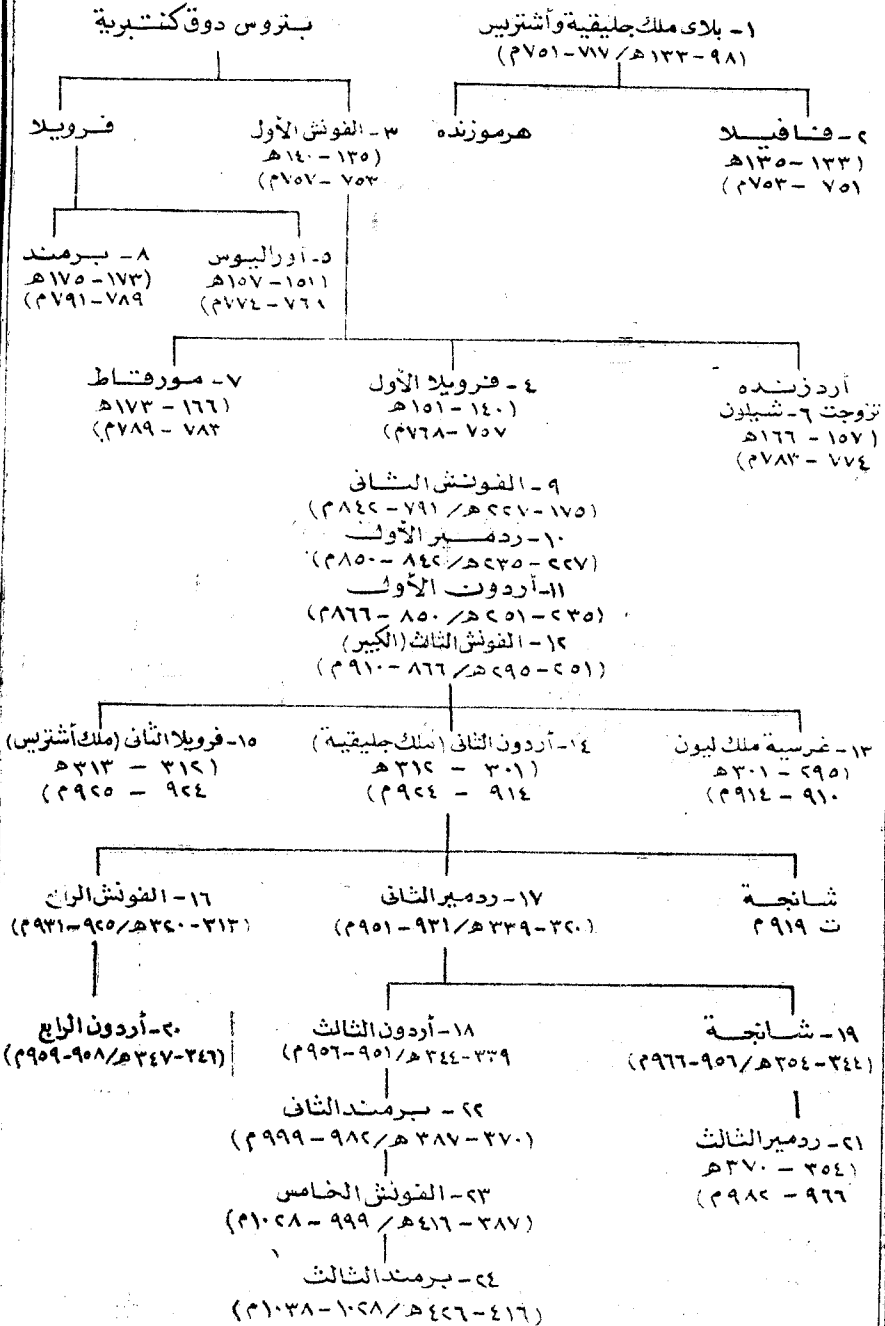 ١- بلاى ملك جليقية وأشتريس
(٩٨-١٣٣هـ/٧١٧-٧٥١م)
بتروس دوق كنتبرية
٢- فافيلا
(١٣٣-١٣٥هـ
٧٥١-٧٥٣م)
هرموزنده
٣- الفونش الأول
(١٣٥-١٤٠هـ
٧٥٣-٧٥٧م)
فرويلا
٥- أوراليوس
(١٥١-١٥٧هـ
٧٦٨-٧٧٤م)
٨- برمند
(١٧٣-١٧٥هـ
٧٨٩-٧٩١م)
أردزنده
تزوجت ٦- شيلون
(١٥٧-١٦٦هـ
٧٧٤-٧٨٣م)
٤- فرويلا الأول
(١٤٠-١٥١هـ
٧٥٧-٧٦٨م)
٧- مورقاط
(١٦٦-١٧٣هـ
٧٨٣-٧٨٩م)
٩- الفونش الثانى
(١٧٥-٢٢٧هـ/٧٩١-٨٤٢م)
١٠- ردمير الأول
(٢٢٧-٢٣٥هـ/٨٤٢-٨٥٠م)
١١- أردون الأول
(٢٣٥-٢٥١هـ/٨٥٠-٨٦٦م)
١٢- الفونش الثالث (الكبير)
(٢٥١-٢٩٥هـ/٨٦٦-٩١٠م)
١٣- غرسية ملك ليون
(٢٩٥-٣٠١هـ
٩١٠-٩١٤م)
١٤- أردون الثانى (ملك جليقية)
(٣٠١-٣١٢هـ
٩١٤-٩٢٤م)
١٥- فرويلا الثانى (ملك أشتريس)
(٣١٢-٣١٣هـ
٩٢٤-٩٢٥م)
شانجة
ت ٩١٩م
١٧- ردمير الثانى
(٣٢٠-٣٣٩هـ/٩٣١-٩٥١م)
١٦- الفونش الرابع
(٣١٣-٣٢٠هـ/٩٢٥-٩٣١م)
١٩- شانجة
(٣٤٤-٣٥٤هـ/٩٥٦-٩٦٦م)
١٨- أردون الثالث
٣٣٩-٣٤٤هـ/٩٥١-٩٥٦م)
٢٠- أردون الرابع
(٣٤٦-٣٤٧هـ/٩٥٨-٩٥٩م)
٢١- ردمير الثالث
(٣٥٤-٣٧٠هـ
٩٦٦-٩٨٢م)
٢٢- برمند الثانى
(٣٧٠-٣٨٧هـ/٩٨٢-٩٩٩م)
٢٣- الفونش الخامس
(٣٨٧-٤١٦هـ/٩٩٩-١٠٢٨م)
٢٤- برمند الثالث
(٤١٦-٤٢٦هـ/١٠٢٨-١٠٣٨م)